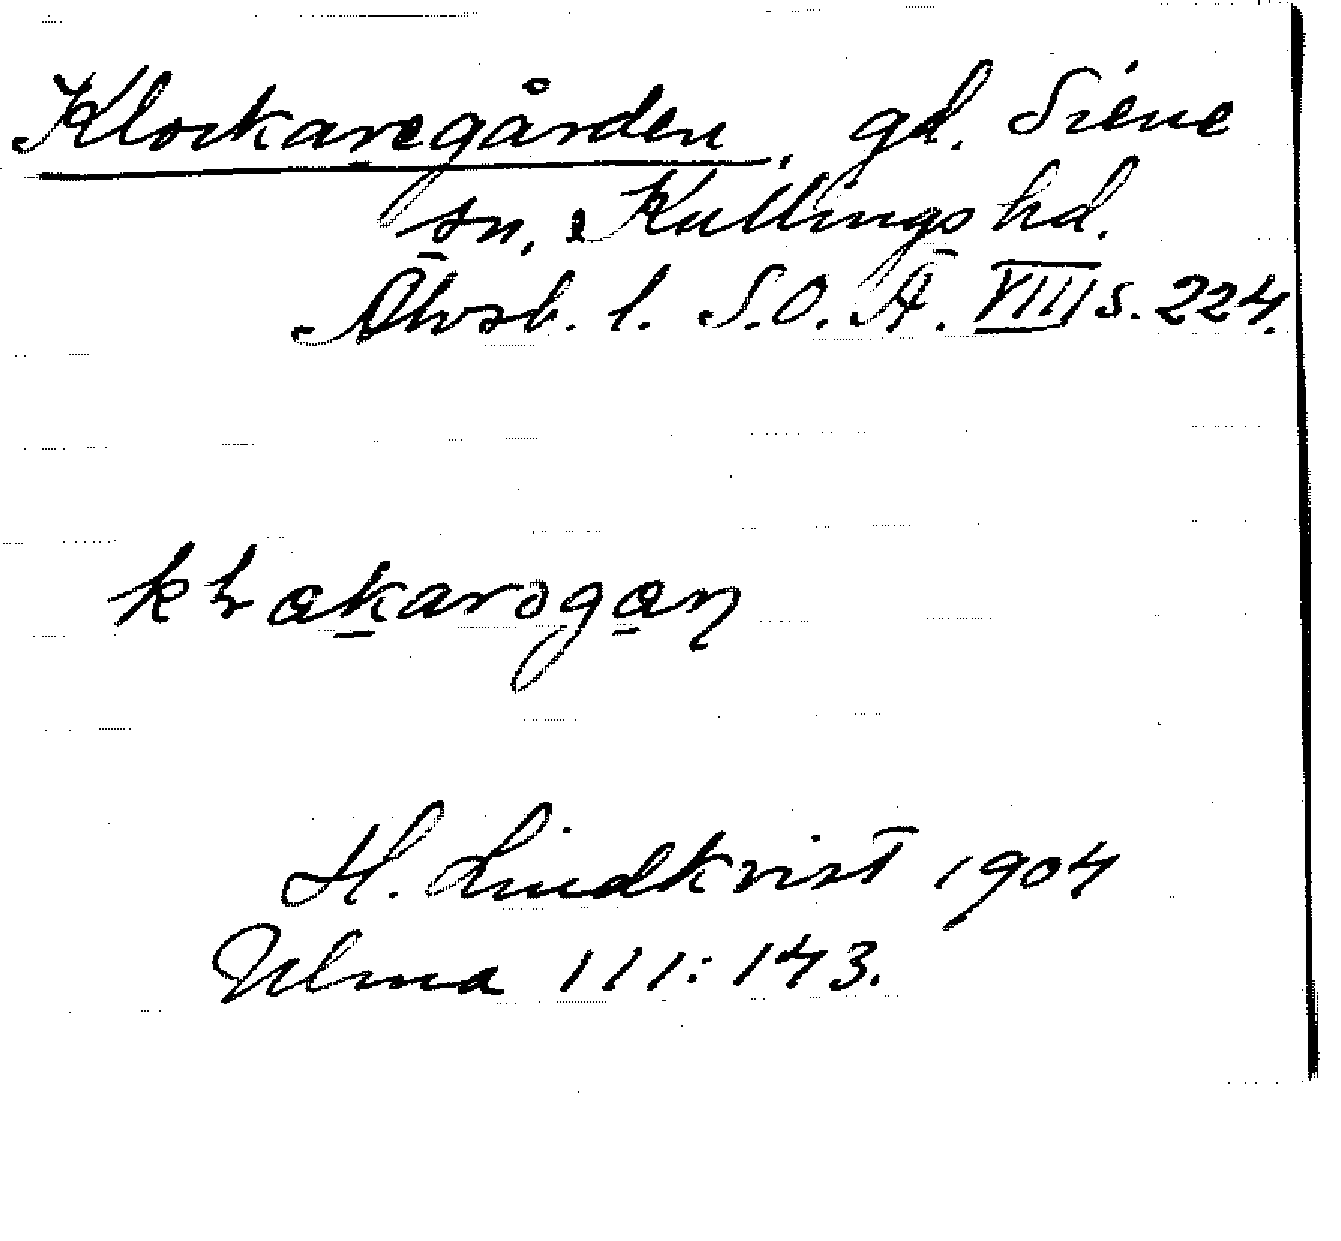 Klockaregården, gd. Siene
sn, Kullings hd.
Älvsb. l. S.O.Ä. VIII s. 224.
kƚokarogan
H. Lindkvist 1904
Ulma 111:143.